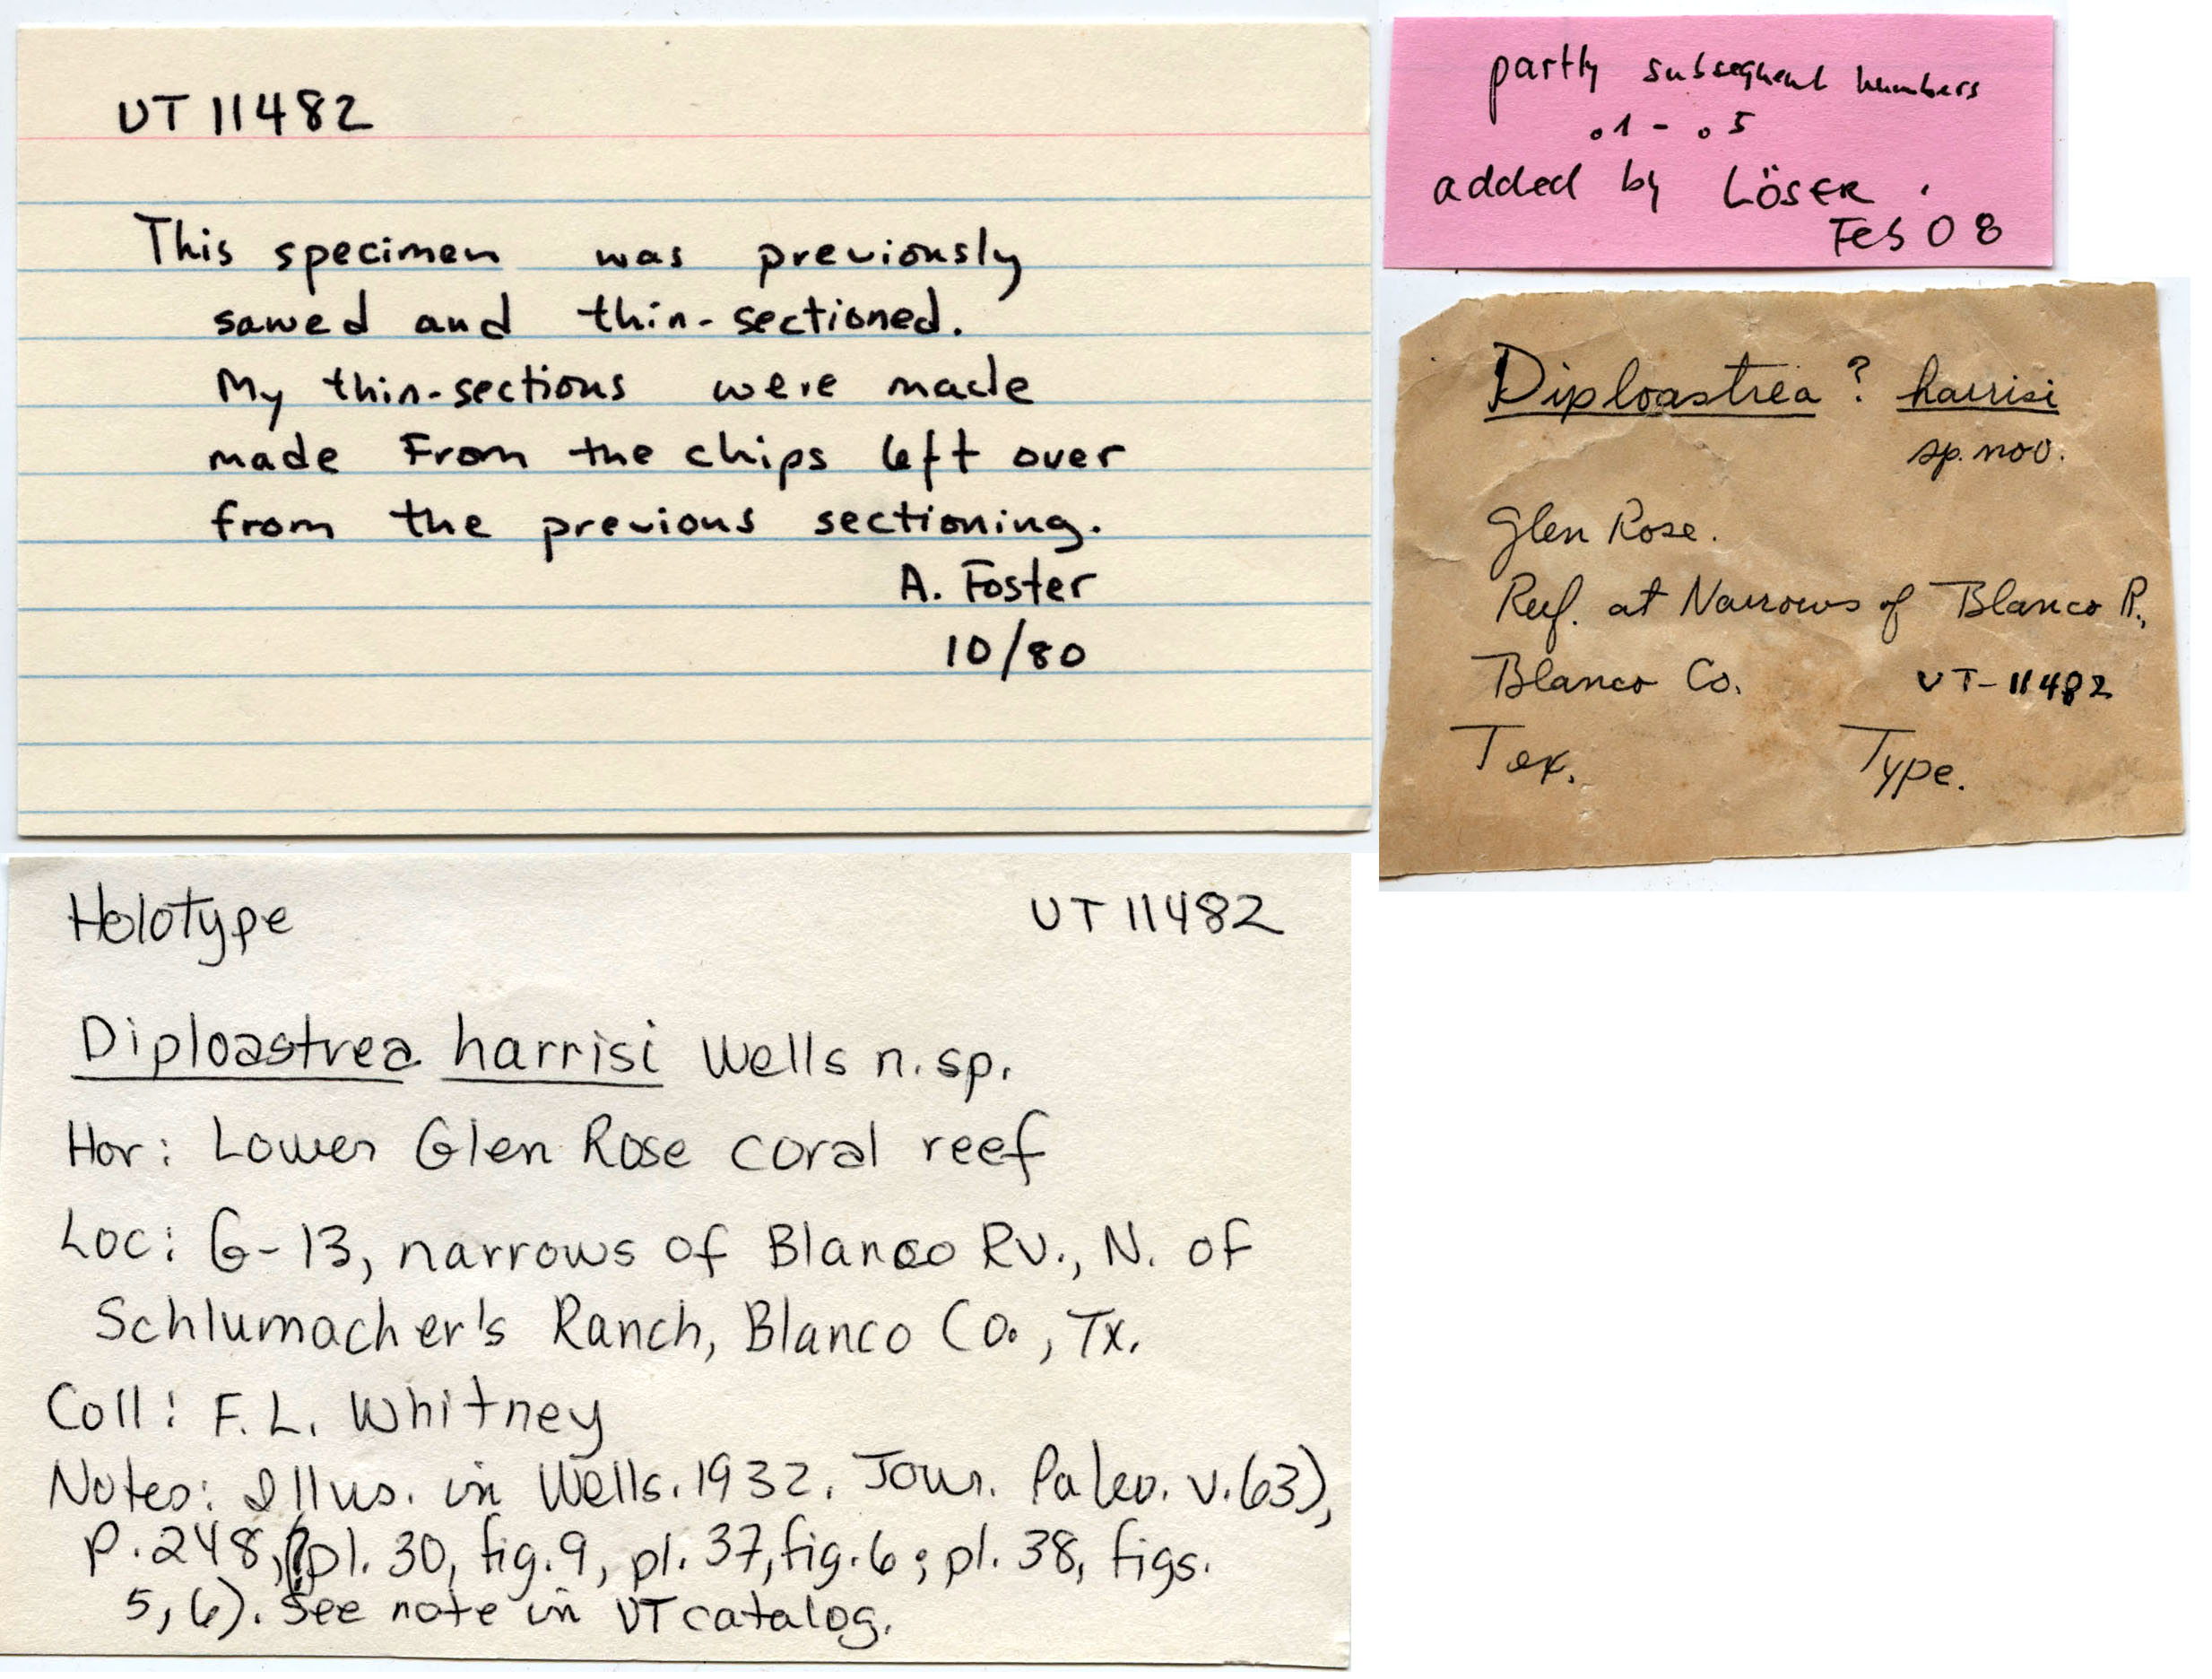 UT 11482
This specimen was previously
sawed and thin-sectioned.
My thin-sections were made
made From the chips left over
from the previous sectioning.
A. Foster
10/80
partly subsequent numbers
.1 - .5
added by LÖSER.
Feb 08
Diploastrea? harrisi
sp. nov.
Glen Rose.
Reef. at Narrows of Blanco R.,
Blanco Co. UT-11482
Tex. Type.
Holotype UT 11482
Diploastrea harrisi Wells n. sp.
Hor: Lower Glen Rose coral reef
Loc: G-13, narrows of Blanco Rv., N. of
Schlumacher's Ranch, Blanco Co., Tx.
Coll: F. L. Whitney
Notes: Illus. in Wells. 1932. Jour. Paleo. v. 6(3),
p. 248, (pl. 30, fig. 9, pl. 37, fig. 6; pl. 38, figs.
5, 6). See note in UT catalog.